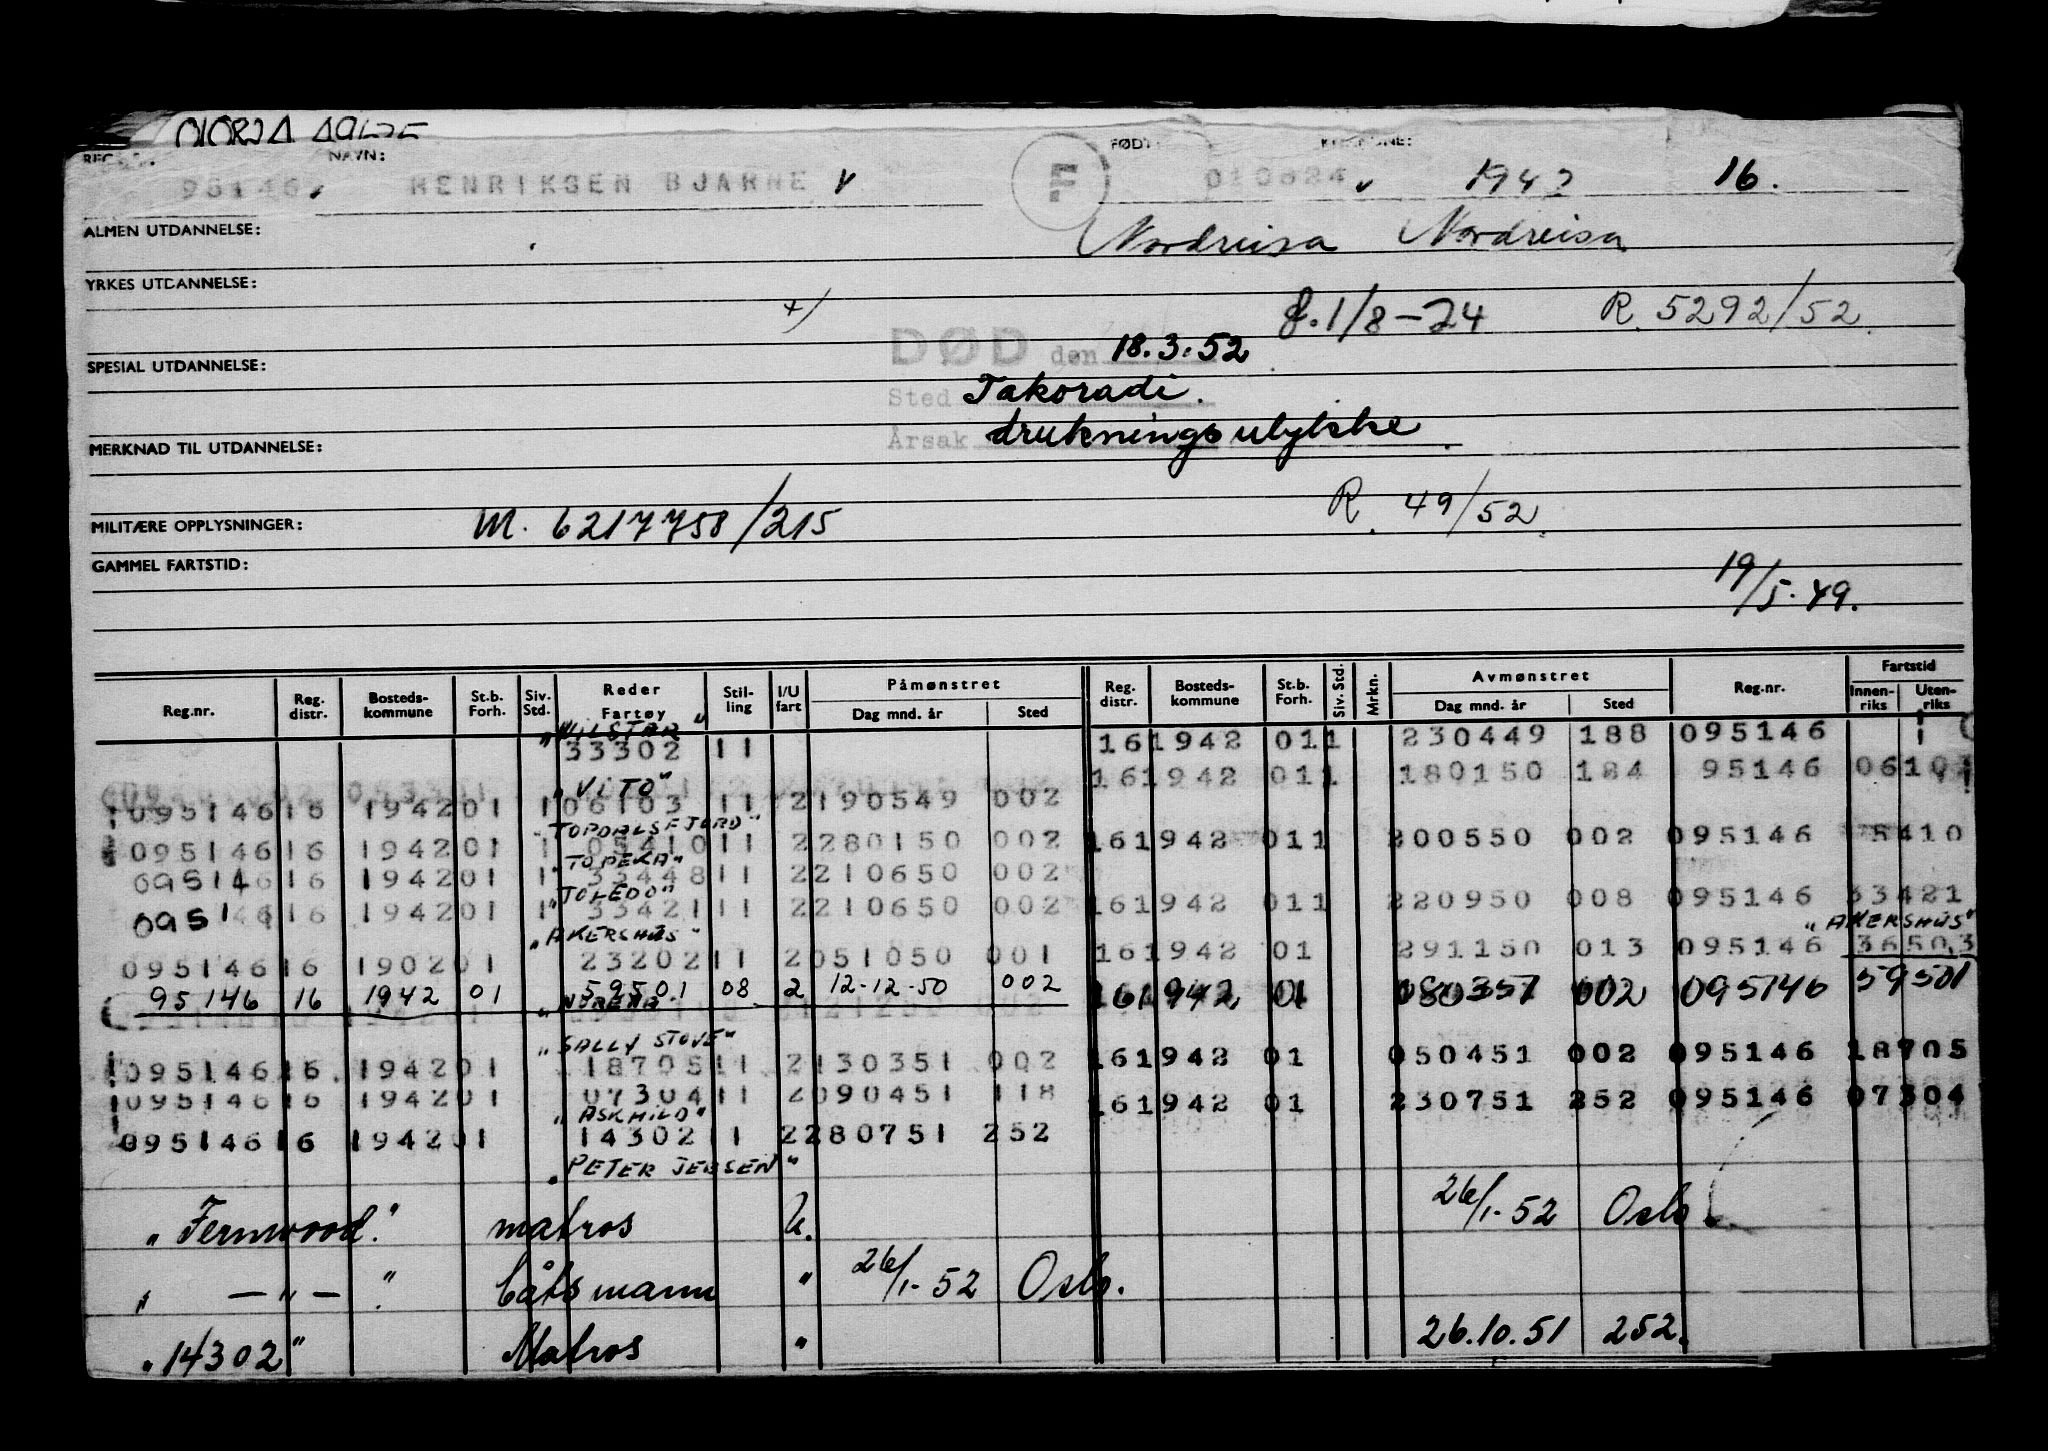 REG. NAVN: FØDT: KOMMUNE:
95146. HENRIKSEN BJARNE v F 010824 v 1942 16.
ALMEN UTDANNELSE: Nordreisa Nordreisa
YRKES UTDANNELSE:
+) f. 1/8-24 R. 5292/52.
DØD den 18.3.52
SPESIAL UTDANNELSE:
Sted Takoradi.
Årsak drukningsulykke.
MERKNAD TIL UTDANNELSE:
MILITÆRE OPPLYSNINGER: M. 6217758/215 R. 49/52.
GAMMEL FARTSTID:
19/5.49.
Reg.nr. Reg. distr. Bosteds- kommune St.b. Forh. Siv. Std. Reder Fartøy Stil- ling I/U fart Påmønstret Dag mnd. år Sted Reg. distr. Bosteds- kommune St.b. Forh. Siv. Std. Mrkn. Avmønstret Dag mnd. år Sted Reg.nr. Fartstid Innen- riks Uten- riks
"VILSTAR"
33302 11 16 1942 01 1 230449 188 095146
"VITO" 16 1942 01 1 180150 184 95146
095146 16 1942 01 1 06103 11 2 190549 002
"TOPDALSFJORD"
095146 16 1942 01 1 05410 11 2 280150 002 16 1942 01 1 200550 002 095146 5410
"TOPEKA"
095146 16 1942 01 1 33448 11 2 210650 002
"TOLEDO"
095146 16 1942 01 1 33421 11 2 210650 002 16 1942 01 1 220950 008 095146 33421
"AKERSHUS" "AKERSHUS"
095146 16 1902 01 23202 11 2 051050 001 16 1942 01 291150 013 095146 36503
95146 16 1942 01 59501 08 2 12-12-50 002 16 1942 01 002 095146 59501
"SALLY STOVE"
095146 16 1942 01 18705 11 2 130351 002 16 1942 01 050451 002 095146 18705
095146 16 1942 01 07304 11 2 090451 118 16 1942 01 230751 252 095146 07304
"ASKHILD"
095146 16 1942 01 14302 11 2 280751 252
"PETER JEBSEN"
"Fernwood." matros U. 26/1-52 Oslo
" — " — " båtsmann " 26/1-52 Oslo.
"14302" Matros " 26.10.51 252.